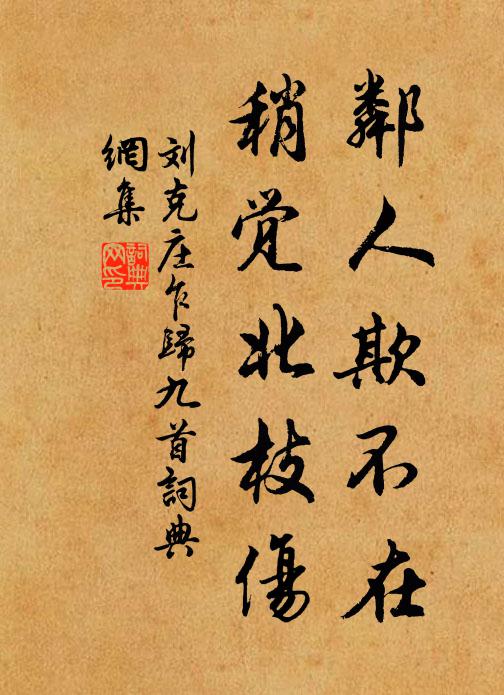 鄰人欺不在
稍觉北枝傷
刘克庄乍歸九首詞典
網集
詞典
网印